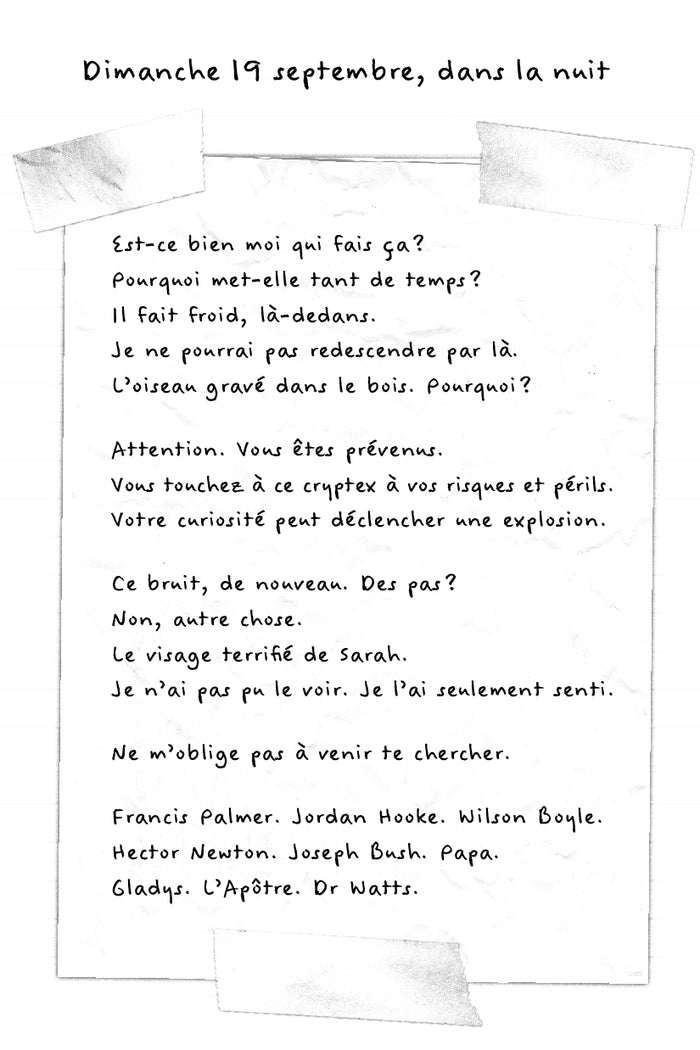 Dimanche 19 septembre, dans la nuit
Est-ce bien moi qui fais ça?
Pourquoi met-elle tant de temps?
Il fait froid, là-dedans.
Je ne pourrai pas redescendre par là.
L'oiseau gravé dans le bois. Pourquoi?
Attention. Vous êtes prévenus.
Vous touchez à ce cryptex à vos risques et périls.
Votre curiosité peut déclencher une explosion.
Ce bruit, de nouveau. Des pas?
Non, autre chose.
Le visage terrifié de Sarah.
Je n'ai pas pu le voir. Je l'ai seulement senti.
Ne m'oblige pas à venir te chercher.
Francis Palmer. Jordan Hooke. Wilson Boyle.
Hector Newton. Joseph Bush. Papa.
Gladys. L'Apôtre. Dr Watts.